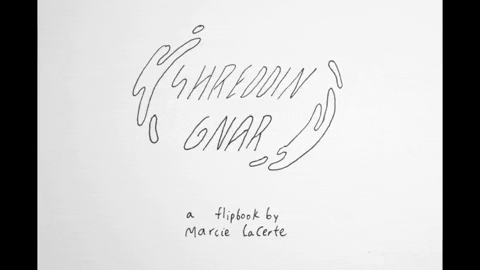 SHREDDIN
GNAR
a flipbook by
Marcie LaCerte